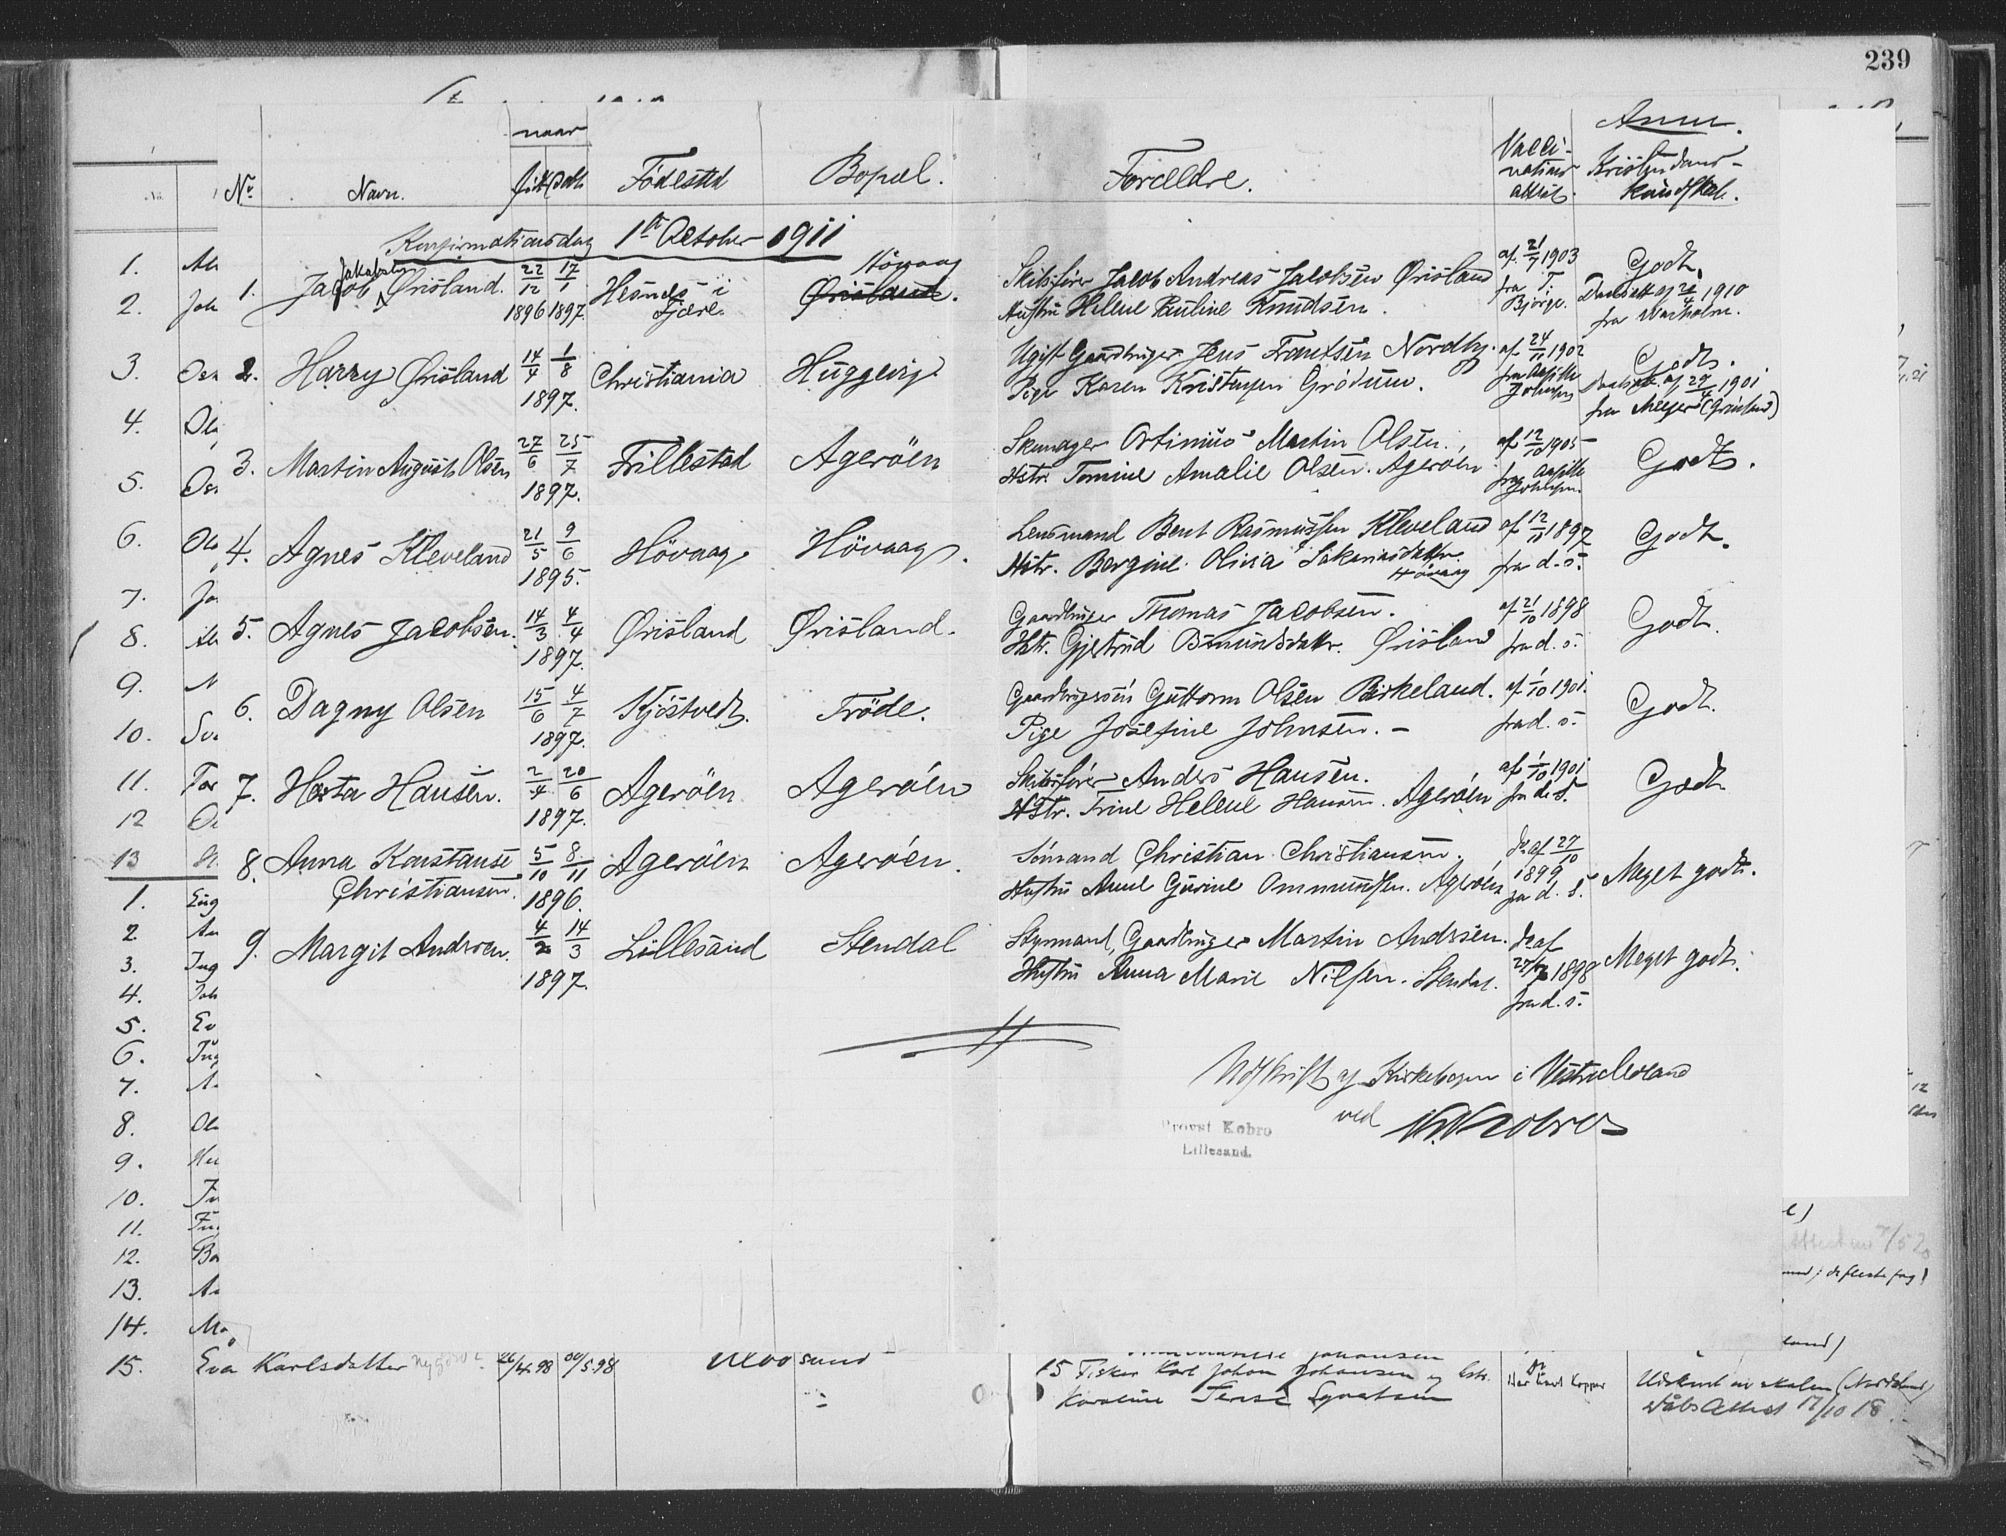 239
Anm.
No.
Navn.
naar
født
døbt
Födested
Bopæl.
Forældre.
Vacci-
nations
attest.
Kristendoms-
kundskab.
Konfirmationsdag 1ste October 1911
1. Jacob Jakobsen Örisland. 22/12 1896 17/1 1897. Hesnes i Fjære. Hövaag Örisland.
Skibsförer Jacob Andreas Jacobsen Örisland
Hustru Helene Pauline Knudsen.
af 21/7 1903
fra T.
Bjorge.
Godt.
Daabsatt. af 20/4 1910
fra
2. Harry Örisland 14/4 1/8 1897. Christiania Huggevig
Ugift Gaardbruger Jens Frantsen Nordby.
Pige Karen Kristensen Grödum.
af 24/11 1902
fra Aasille
Johnsen
Godt.
Daabsatt. af 29/4 1901
fra Meyer (Grönland)
3. Martin August Olsen 27/6 25/7 1897. Trillestad Ageröen
Skrædder Ortinius Martin Olsen.
Hstr. Tomine Amalie Olsen. Ageröen
af 12/10 1905
fra Aasille
Johnsen.
Godt.
4. Agnes Kleveland 21/5 9/6 1895. Hövaag Hövaag.
Lensmand Bent Rasmussen Kleveland
Hstr. Bergine Olivia Sakariasdatter.
Hövaag
af 12/10 1897
fra d. s.
Godt.
5. Agnes Jacobsen. 14/3 4/4 1897. Örisland Örisland.
Gaardbruger Thomas Jacobsen.
Hstr. Gjertrud Osmundsdattr. Örisland
af 21/10 1898
fra d. s.
Godt.
6. Dagny Olsen 15/6 4/7 1897. Kjöstvedt. Tröde.
Gaardbrugersön Guttorm Olsen Birkeland.
Pige Josefine Johnsen.
af 1/10 1901.
fra d. s.
Godt.
7. Herta Hansen. 2/4 20/6 1897. Ageröen Ageröen
Skibsförer Anders Hansen.
Hstr. Trine Helene Hansen. Ageröen
af 1/10 1901
fra d. s.
Godt
8. Anna Konstanse Christiansen. 5/10 8/11 1896. Ageröen Ageröen.
Sömand Christian Christiansen.
Hustru Anne Gurine Ommundsen. Ageröen
af 27/10
1899
fra d. s.
Meget godt.
9. Margit Andersen. 4/2 14/3 1897. Lillesand Stendal
Styrmand, Gaardbruger Martin Andersen.
Hustru Anna Marie Nilsen. Stendal.
af
1898
fra d. s.
Meget godt.
Udskrift af Kirkebogen i Vestre Moland
ved
Provst Kobro
Lillesand.
1.
2. Joh
3.
4.
5.
6.
7.
8.
9.
10.
11. Tor
12
13
1. Eug
2.
3. Ing
4. Joh
5.
6. Ing
7.
8.
9.
10.
11.
12.
13.
14.
15. Eva Karlsdatter 26/4 98
15 Fisker Karl Johan Johansen og hstr.
Karoline
Daabs Attest 17/10 18